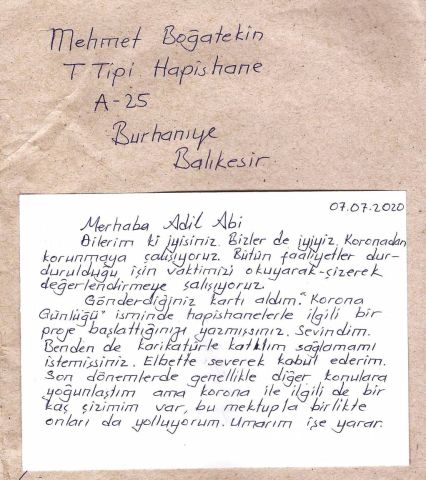 Mehmet Boğatekin
T Tipi Hapishane
A-25
Burhaniye
Balıkesir
07.07.2020
Merhaba Adil Abi
Dilerim ki iyisiniz. Bizler de iyiyiz. Koronadan
korunmaya çalışıyoruz. Bütün faaliyetler dur-
durulduğu için vaktimizi okuyarak-çizerek
değerlendirmeye çalışıyoruz.
Gönderdiğiniz kartı aldım. "Korona
Günlüğü" isminde hapishanelerle ilgili bir
proje başlattığınızı yazmışsınız. Sevindim.
Benden de karikatürle katkım sağlamamı
istemişsiniz. Elbette severek kabul ederim.
Son dönemlerde genellikle diğer konulara
yoğunlaştım ama korona ile ilgili de bir
kaç çizimim var, bu mektupla birlikte
onları da yolluyorum. Umarım işe yarar.